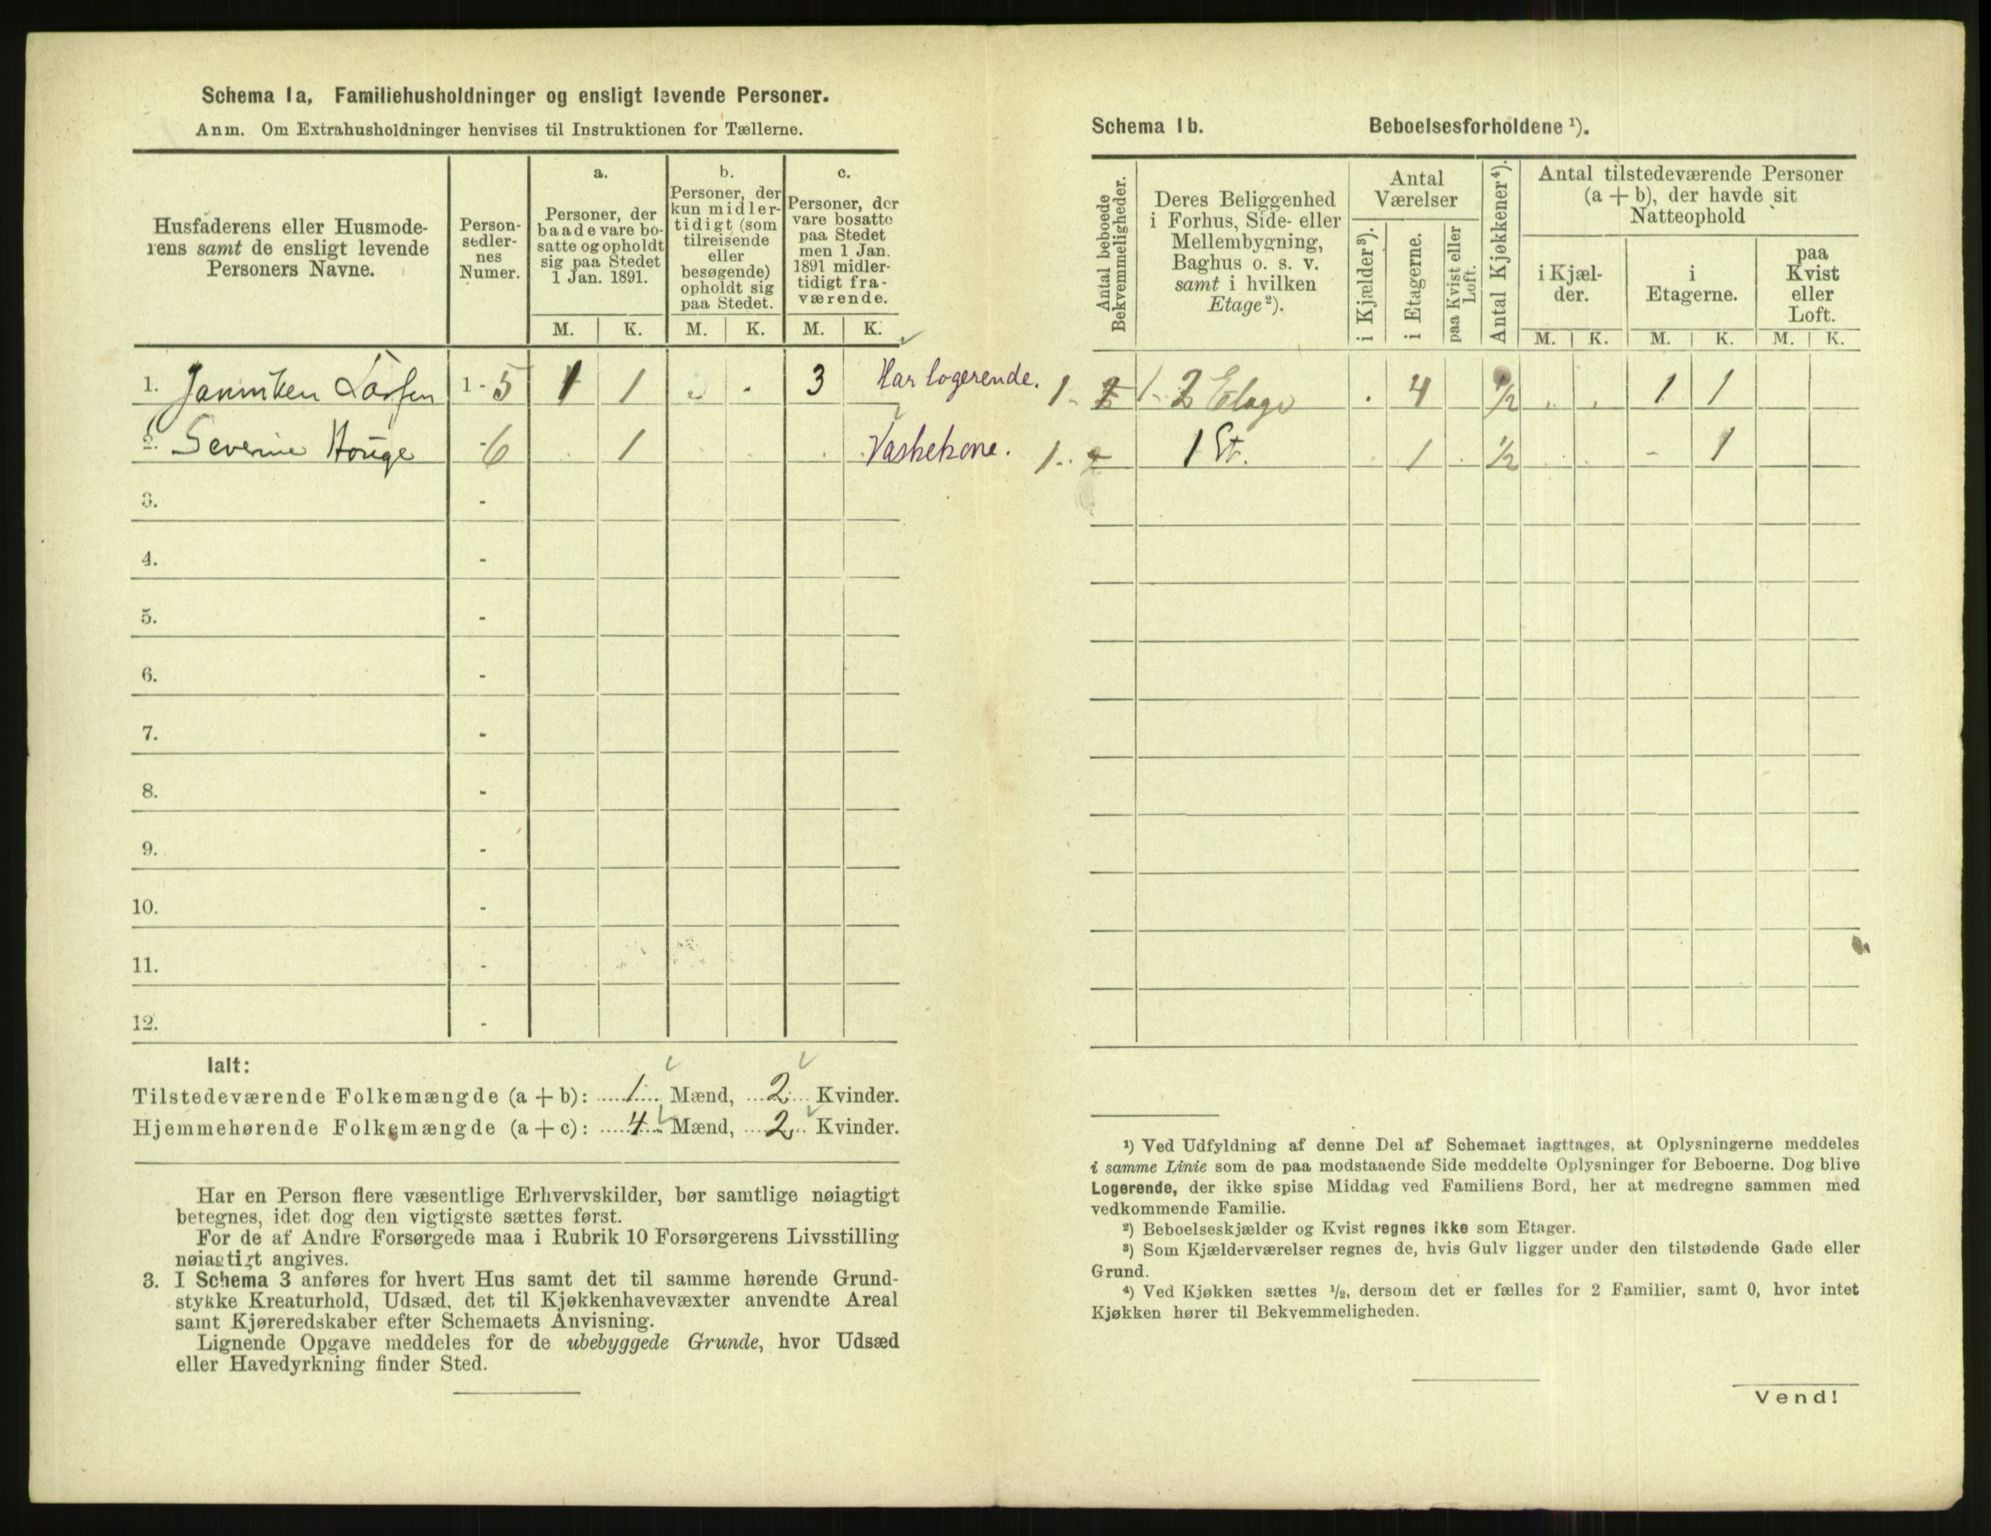 Schema 1a, Familiehusholdninger og ensligt levende Personer.
Anm. Om Extrahusholdninger henvises til Instruktionen for Tællerne.
Husfaderens eller Husmode-
rens samt de ensligt levende
Personers Navne.
Person-
sedler-
nes
Numer.
a.
Personer, der
baade vare bo-
satte og opholdt
sig paa Stedet
1 Jan. 1891.
b.
Personer, der
kun midler-
tidigt (som
tilreisende
eller
besøgende)
opholdt sig
paa Stedet.
c.
Personer, der
vare bosatte
paa Stedet
men 1 Jan.
1891 midler-
tidigt fra-
værende.
M. K. M. K. M. K.
1. Janniken Larsen 1 - 5 1 1 - 3 Har logerende.
2. Severine Houge - 6 1 Vaskekone.
3. -
4. -
5. -
6. -
7. -
8. -
9. -
10. -
11. -
12. -
Ialt:
Tilstedeværende Folkemængde (a + b): 1 Mænd, 2 Kvinder.
Hjemmehørende Folkemængde (a + c): 4 Mænd, 2 Kvinder.
Har en Person flere væsentlige Erhvervskilder, bør samtlige nøiagtigt
betegnes, idet dog den vigtigste sættes først.
For de af Andre Forsørgede maa i Rubrik 10 Forsørgerens Livsstilling
nøiagtigt angives.
3. I Schema 3 anføres for hvert Hus samt det til samme hørende Grund-
stykke Kreaturhold, Udsæd, det til Kjøkkenhavevæxter anvendte Areal
samt Kjøreredskaber efter Schemaets Anvisning.
Lignende Opgave meddeles for de ubebyggede Grunde, hvor Udsæd
eller Havedyrkning finder Sted.
Schema 1b. Beboelsesforholdene ¹).
Antal beboede
Bekvemmeligheder.
Deres Beliggenhed
i Forhus, Side- eller
Mellembygning,
Baghus o. s. v.
samt i hvilken
Etage²).
Antal
Værelser
i Kjælder³).
i Etagerne.
paa Kvist eller
Loft.
Antal Kjøkkener⁴).
Antal tilstedeværende Personer
(a + b), der havde sit
Natteophold
i Kjæl-
der.
i
Etagerne.
paa
Kvist
eller
Loft.
M. K. M. K. M. K.
1 - 2 1 - 2 Etage . 4 1/2 . . 1 1
1 - 2 1 Et. . 1 . 1/2 . . - 1
¹) Ved Udfyldning af denne Del af Schemaet iagttages, at Oplysningerne meddeles
i samme Linie som de paa modstaaende Side meddelte Oplysninger for Beboerne. Dog blive
Logerende, der ikke spise Middag ved Familiens Bord, her at medregne sammen med
vedkommende Familie.
²) Beboelseskjælder og Kvist regnes ikke som Etager.
³) Som Kjælderværelser regnes de, hvis Gulv ligger under den tilstødende Gade eller
Grund.
⁴) Ved Kjøkken sættes ½, dersom det er fælles for 2 Familier, samt 0, hvor intet
Kjøkken hører til Bekvemmeligheden.
Vend!